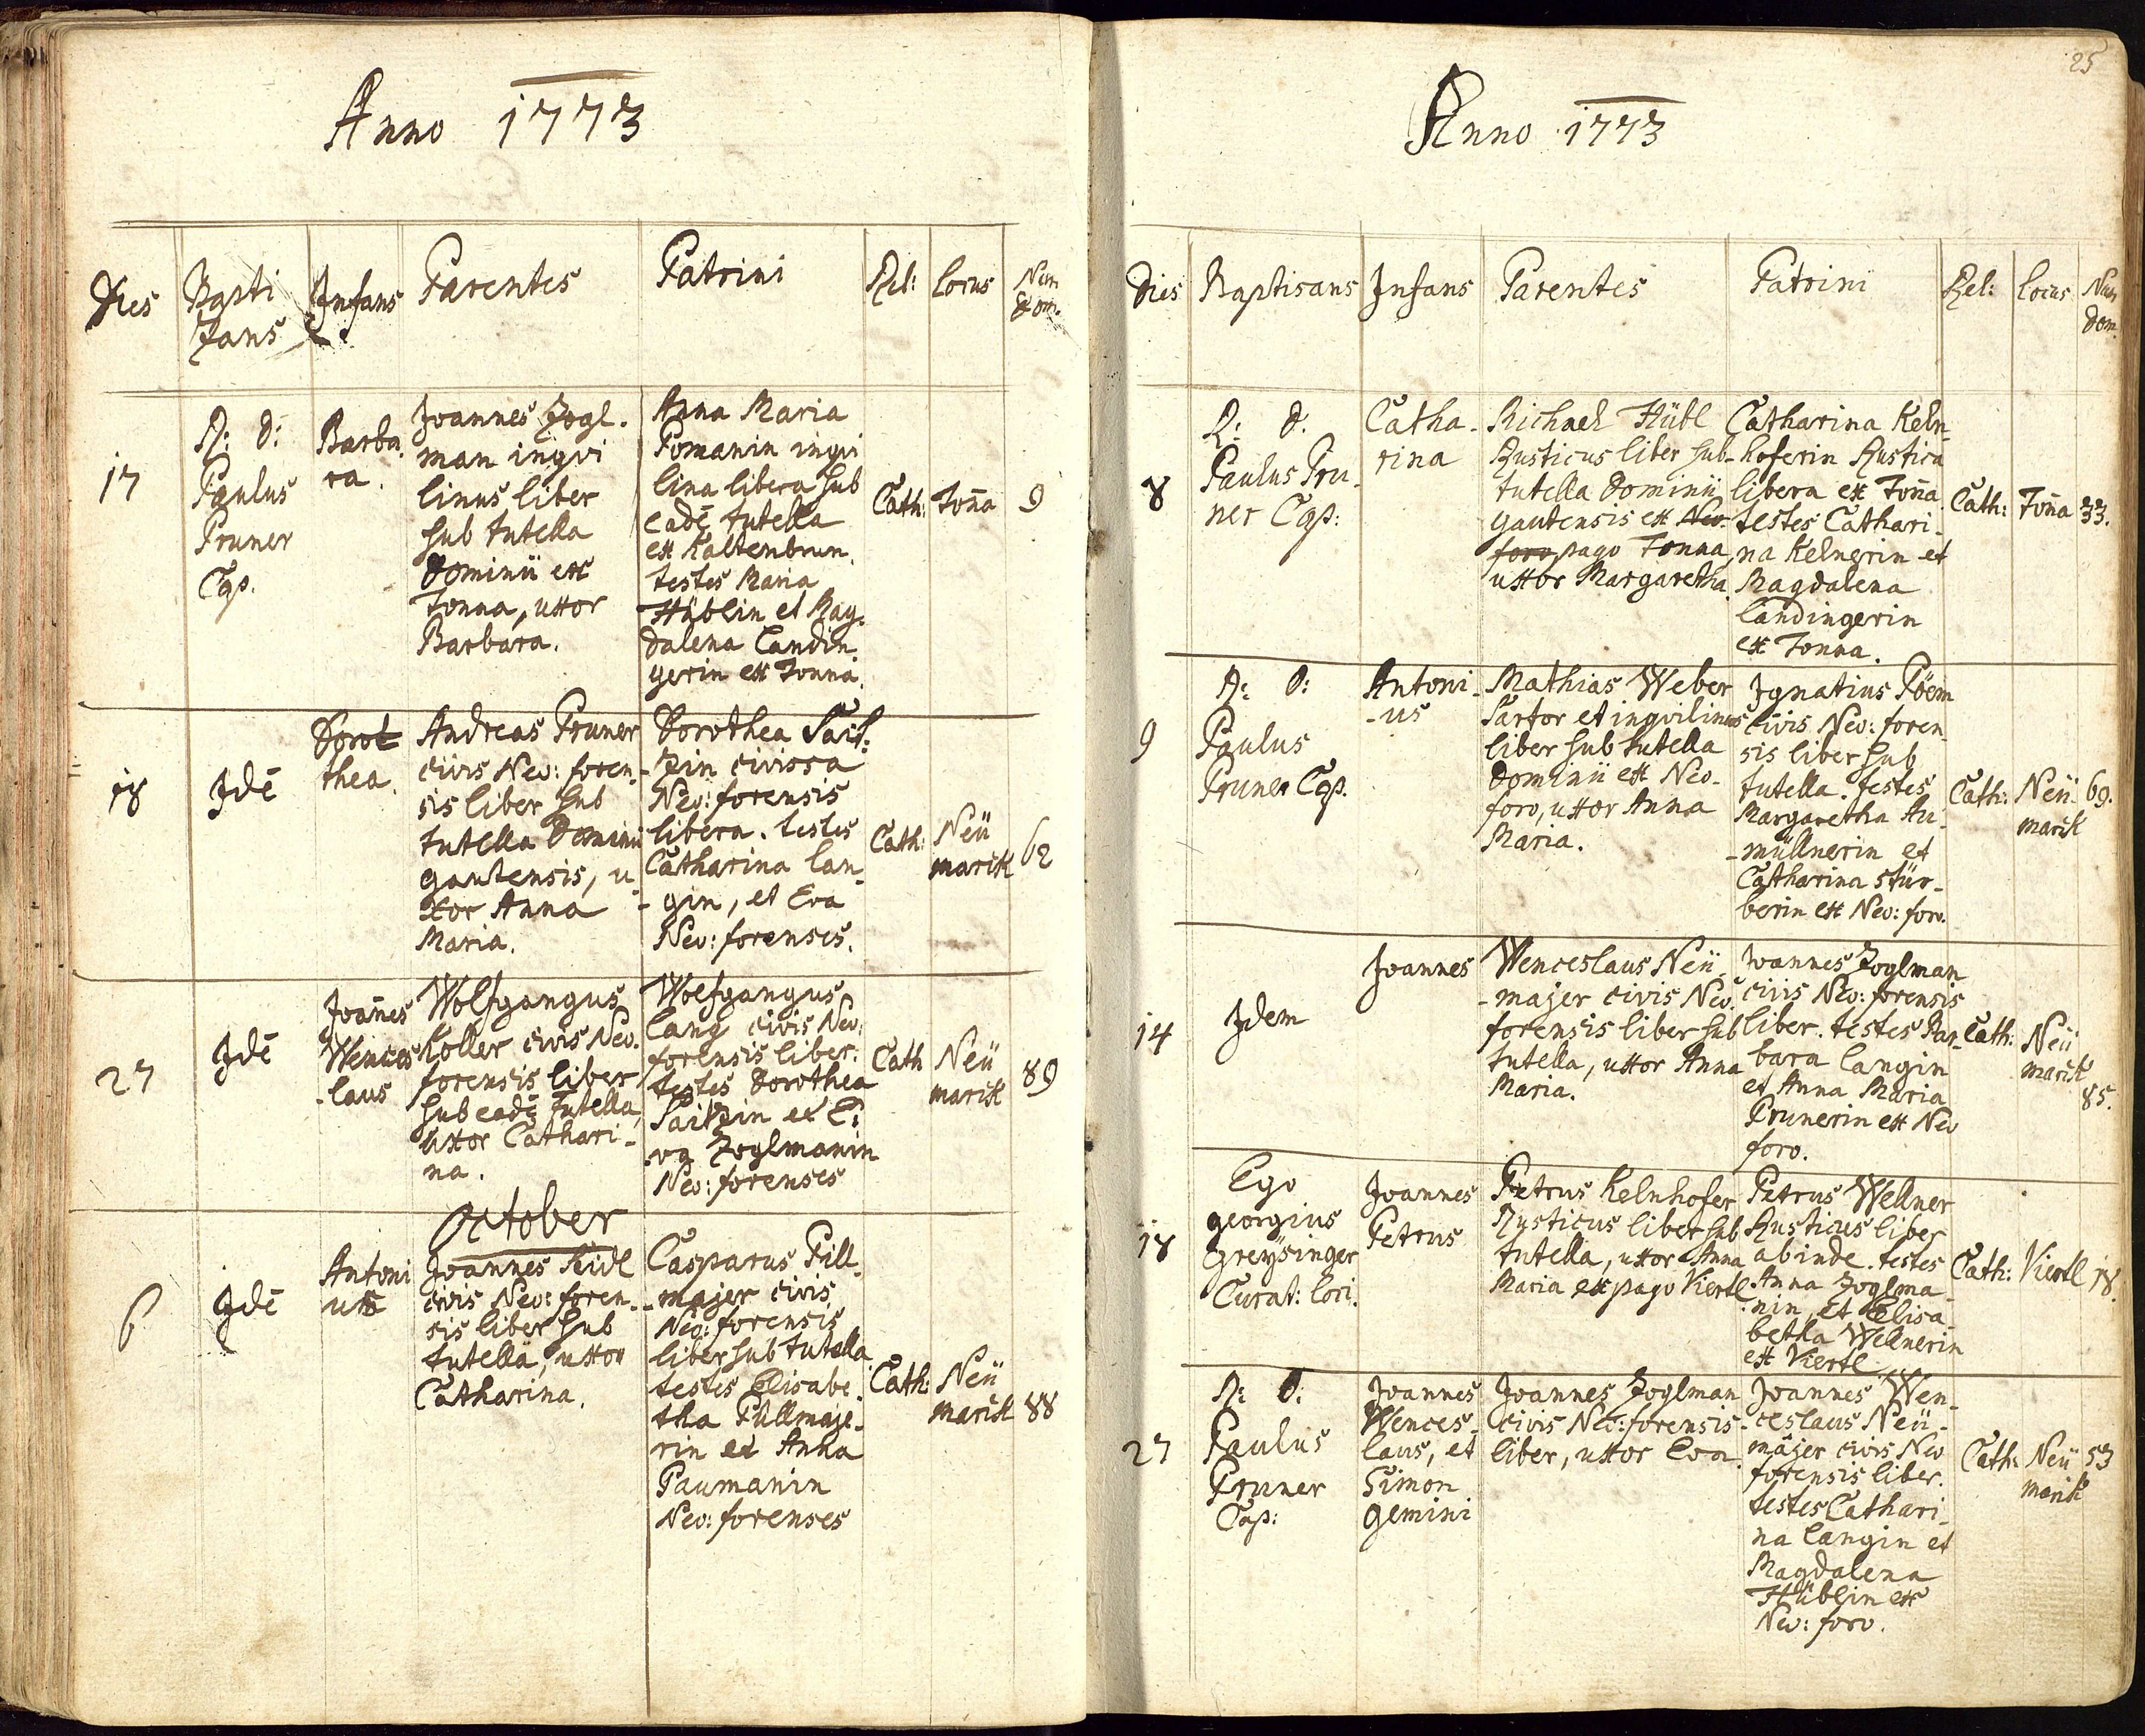 Anno 1773
Dies
Bapti
zans
Infans
Parentes
Patrini
Rel:
Locus
Num
Dom.
17
R: D:
Paulus
Pruner
Cap.
Barba
ra.
Joannes Zogl.
man inqvi
linus liber
sub tutella
Dominii ex
Tonna, uxor
Barbara.
Anna Maria
Pomanin inqvi
lina libera sub
eadē tutella
ex Kaltenbrun.
testes Maria
Hüblin et Mag.
dalena Landin
gerin ex Tonna.
Cath:
Toña
9
18
Idē
Dorot
thea.
Andreas Pruner
civis Neo: foren-
sis liber sub
tutella Dominii
gautensis, u
xor Anna
Maria.
Dorothea Sait.
zin civissa
Neo: forensis
libera. testes
Catharina Lan
- gin, et Eva
Neo: forenses.
Cath:
Neü
markt
62
27
Idē
Joañes
Wences
-laus
Wolfgangus
Koller civis Neo.
forensis liber
sub eadē tutella,
uxor Cathari-
na.
Wolfgangus
Lang civis Neo.
forensis liber.
testes Dorothea
Saitzin et E.
va Zoglmanin
Neo: forenses
Cath
Neü
markt
89
October
6
Idē
Antoni
us
Joannes Seidl
civis Neo: foren.
sis liber sub
tutella, uxor
Catharina.
Casparus Pill.
majer civis
Neo: forensis
liber sub tutella
testes Elisabe.
tha Püllmaje-
rin et Anna
Paumanin
Neo: forenses
Cath:
Neü
markt
88
25
Anno 1773
Dies
Baptisans
Infans
Parentes
Patrini
Rel:
Locus
Num
Dom.
8
R: D.
Paulus Pru-
ner Cap:
Catha-
rina
Michael Hübl
Rusticus liber sub-
tutella Dominii
gautensis ex Neo-
foro pago Tonna,
uxor Margaretha.
Catharina Keln-
hoferin Rustica
libera ex Toña
testes Cathari-
na Kelnerin et
Magdalena
Landingerin
ex Tonna.
Cath:
Toña
33.
9
R: D:
Paulus
Pruner Cap.
Antoni-
-us
Mathias Weber
Sartor et inqvilinus
liber sub tutella
Dominii ex Neo-
foro, uxor Anna
Maria.
Ignatius Pöem
civis Neo: foren
sis liber sub
tutella. testes
Margaretha Au-
-müllnerin et
Catharina Stür-
berin ex Neo: foro.
Cath:
Neü-
markt
69.
14
Idem
Joannes
Wenceslaus Neü-
-majer civis Neo.
forensis liber sub
tutella, uxor Anna
Maria.
Joannes Zoglman
civis Neo: forensis
liber. testes Bar-
bara Langin
et Anna Maria
Prunerin ex Neo
foro.
Cath:
Neü
markt
85.
18
Ego
georgius
Greysinger
Curat: Lori.
Joannes
Petrus
Petrus Kelnhofer
Rusticus liber sub
tutella, uxor Anna
Maria ex pago Viertl.
Petrus Wellner
Rusticus liber
abinde. testes
Anna Zoglma-
nin, et Elisa-
betha Wellnerin
ex Viertl.
Cath:
Viertl
18.
27
R: D:
Paulus
Pruner
Cap:
Joannes
Wences-
laus, et
Simon
gemini
Joannes Zoglman
civis Neo: forensis
liber, uxor Eva.
Joannes Wen-
ceslaus Neü-
majer civis Neo
forensis liber.
testes Cathari-
na Langin et
Magdalena
Hüblin ex
Neo: foro.
Cath:
Neü
markt
53